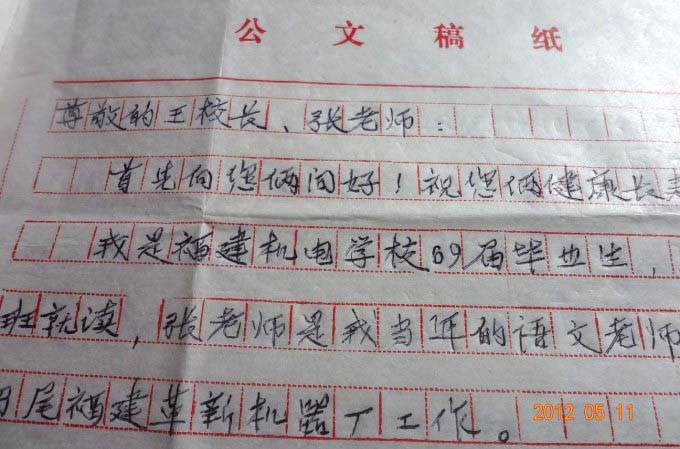 公文稿纸
尊敬的王校长、张老师：
首先向您俩问好！祝您俩健康长寿
我是福建机电学校69届毕业生，
班就读，张老师是我当年的语文老师
尾福建革新机器厂工作。
2012 05 11